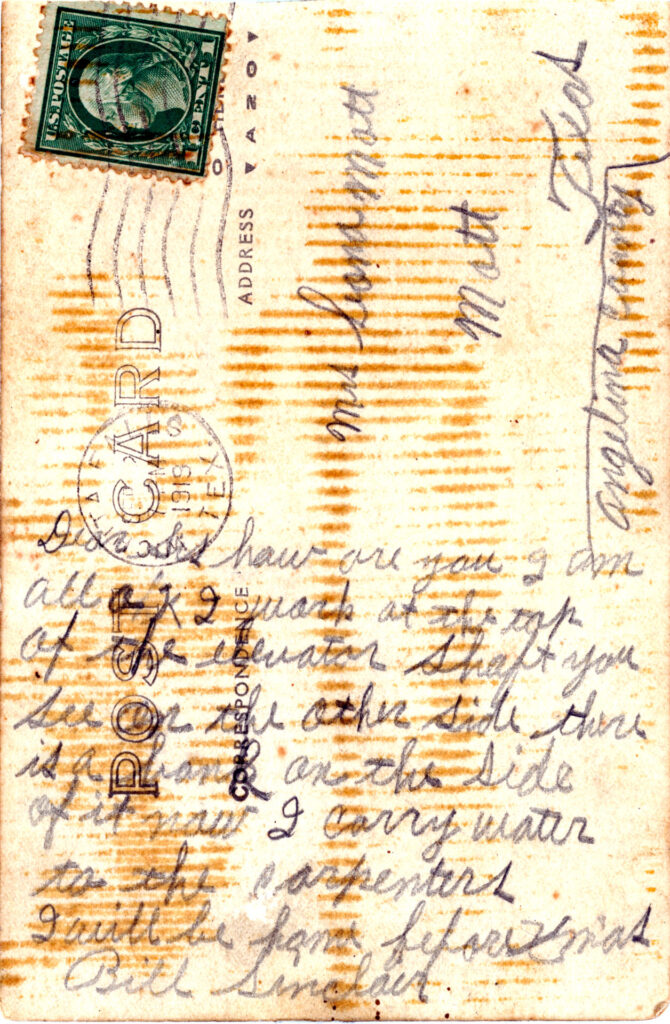 U.S. POSTAGE
1 CENT 1
POST CARD
CORRESPONDENCE
ADDRESS
AZO
1918
TEX
Mrs Mott
Mott
Texas
Angelina County
Dear Sis haw are you I am
all o.k I work at the top
of the elevator shaft you
see on the other side there
is a on the side
of it now I carry water
to the carpenters
I will be home before Xmas
Bill Sinclair